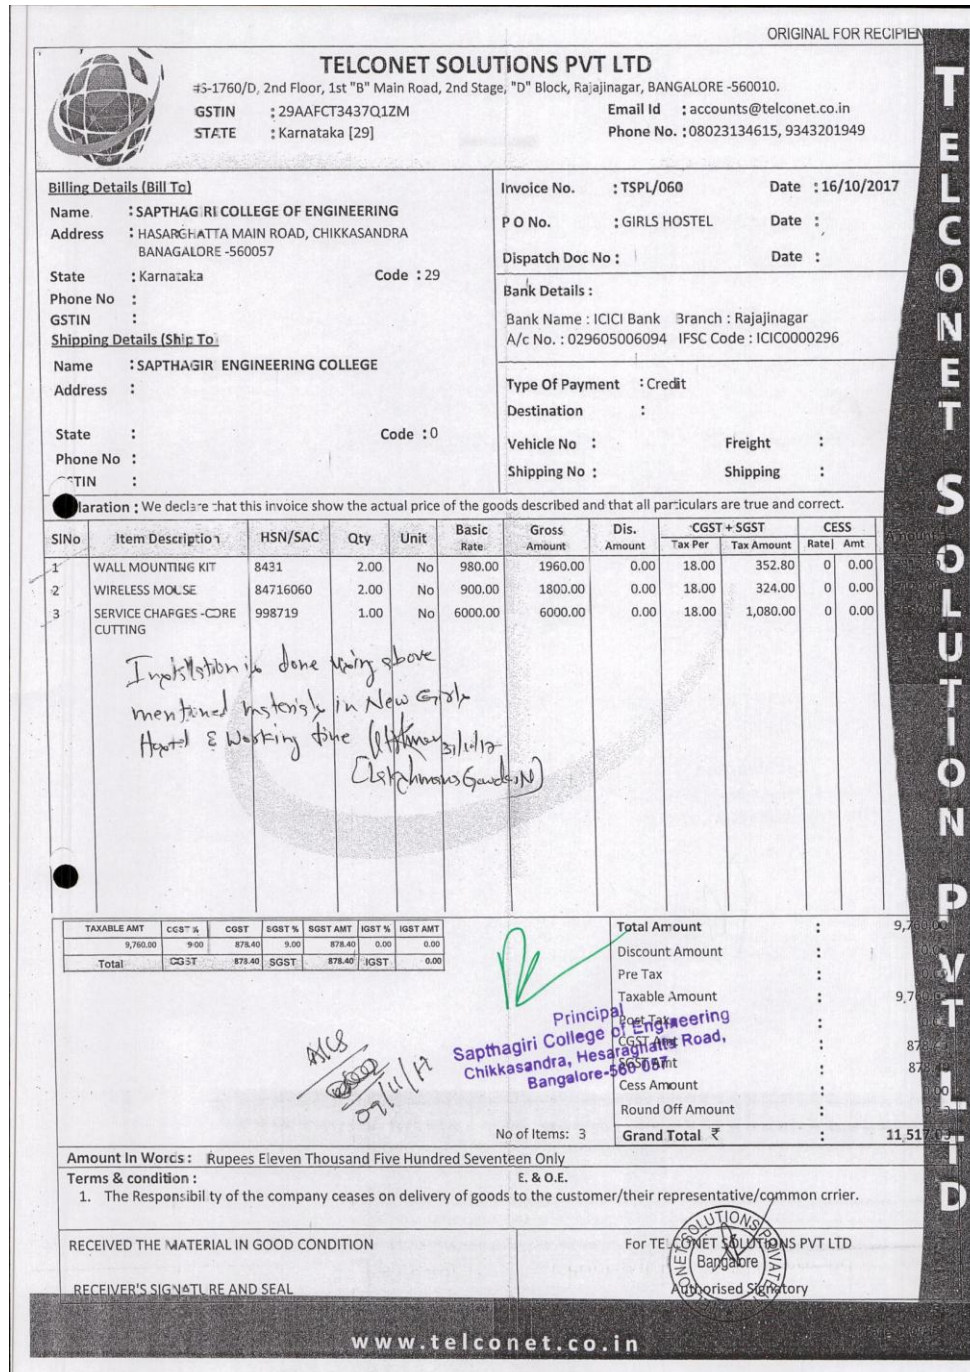 ORIGINAL FOR RECIPIEN
TELCONET SOLUTIONS PVT LTD
#S-1760/D, 2nd Floor, 1st "B" Main Road, 2nd Stage, "D" Block, Rajajinagar, BANGALORE -560010.
GSTIN : 29AAFCT3437Q1ZM Email Id : accounts@telconet.co.in
STATE : Karnataka [29] Phone No. : 08023134615, 9343201949
Billing Details (Bill To)
Name : SAPTHAGIRI COLLEGE OF ENGINEERING
Address : HASARGHATTA MAIN ROAD, CHIKKASANDRA
BANAGALORE -560057
State : Karnataka Code : 29
Phone No :
GSTIN :
Shipping Details (Ship To
Name : SAPTHAGIR ENGINEERING COLLEGE
Address :
State : Code : 0
Phone No :
GSTIN :
Invoice No. : TSPL/060 Date : 16/10/2017
P O No. : GIRLS HOSTEL Date :
Dispatch Doc No : Date :
Bank Details :
Bank Name : ICICI Bank Branch : Rajajinagar
A/c No. : 029605006094 IFSC Code : ICIC0000296
Type Of Payment : Credit
Destination :
Vehicle No : Freight :
Shipping No : Shipping :
laration : We declare that this invoice show the actual price of the goods described and that all particulars are true and correct.
SlNo Item Description HSN/SAC Qty Unit Basic Rate Gross Amount Dis. Amount CGST + SGST Tax Per Tax Amount CESS Rate Amt Amount
1 WALL MOUNTING KIT 8431 2.00 No 980.00 1960.00 0.00 18.00 352.80 0 0.00
2 WIRELESS MOUSE 84716060 2.00 No 900.00 1800.00 0.00 18.00 324.00 0 0.00
3 SERVICE CHARGES -CORE 998719 1.00 No 6000.00 6000.00 0.00 18.00 1,080.00 0 0.00
CUTTING
Installation is done using above
mentioned materials in New Girls
Hostel & Working fine 31/10/17
TAXABLE AMT CGST % CGST SGST % SGST AMT IGST % IGST AMT
9,760.00 9.00 878.40 9.00 878.40 0.00 0.00
Total CGST 878.40 SGST 878.40 IGST 0.00
Total Amount : 9,760.00
Discount Amount :
Pre Tax :
Taxable Amount :
Post Tax :
CGST Amt :
SGST Amt :
Cess Amount :
Round Off Amount :
No of Items: 3 Grand Total ₹ : 11,517.03
Principal
Sapthagiri College of Engineering
Chikkasandra, Hesaraghatta Road,
Bangalore-560 057
09/11/17
Amount In Words : Rupees Eleven Thousand Five Hundred Seventeen Only
Terms & condition : E. & O.E.
1. The Responsibil ty of the company ceases on delivery of goods to the customer/their representative/common crrier.
RECEIVED THE MATERIAL IN GOOD CONDITION
RECEIVER'S SIGNATURE AND SEAL
For TELCONET SOLUTIONS PVT LTD
Bangalore
Authorised Signatory
www.telconet.co.in
TELCONET SOLUTION PVT LTD